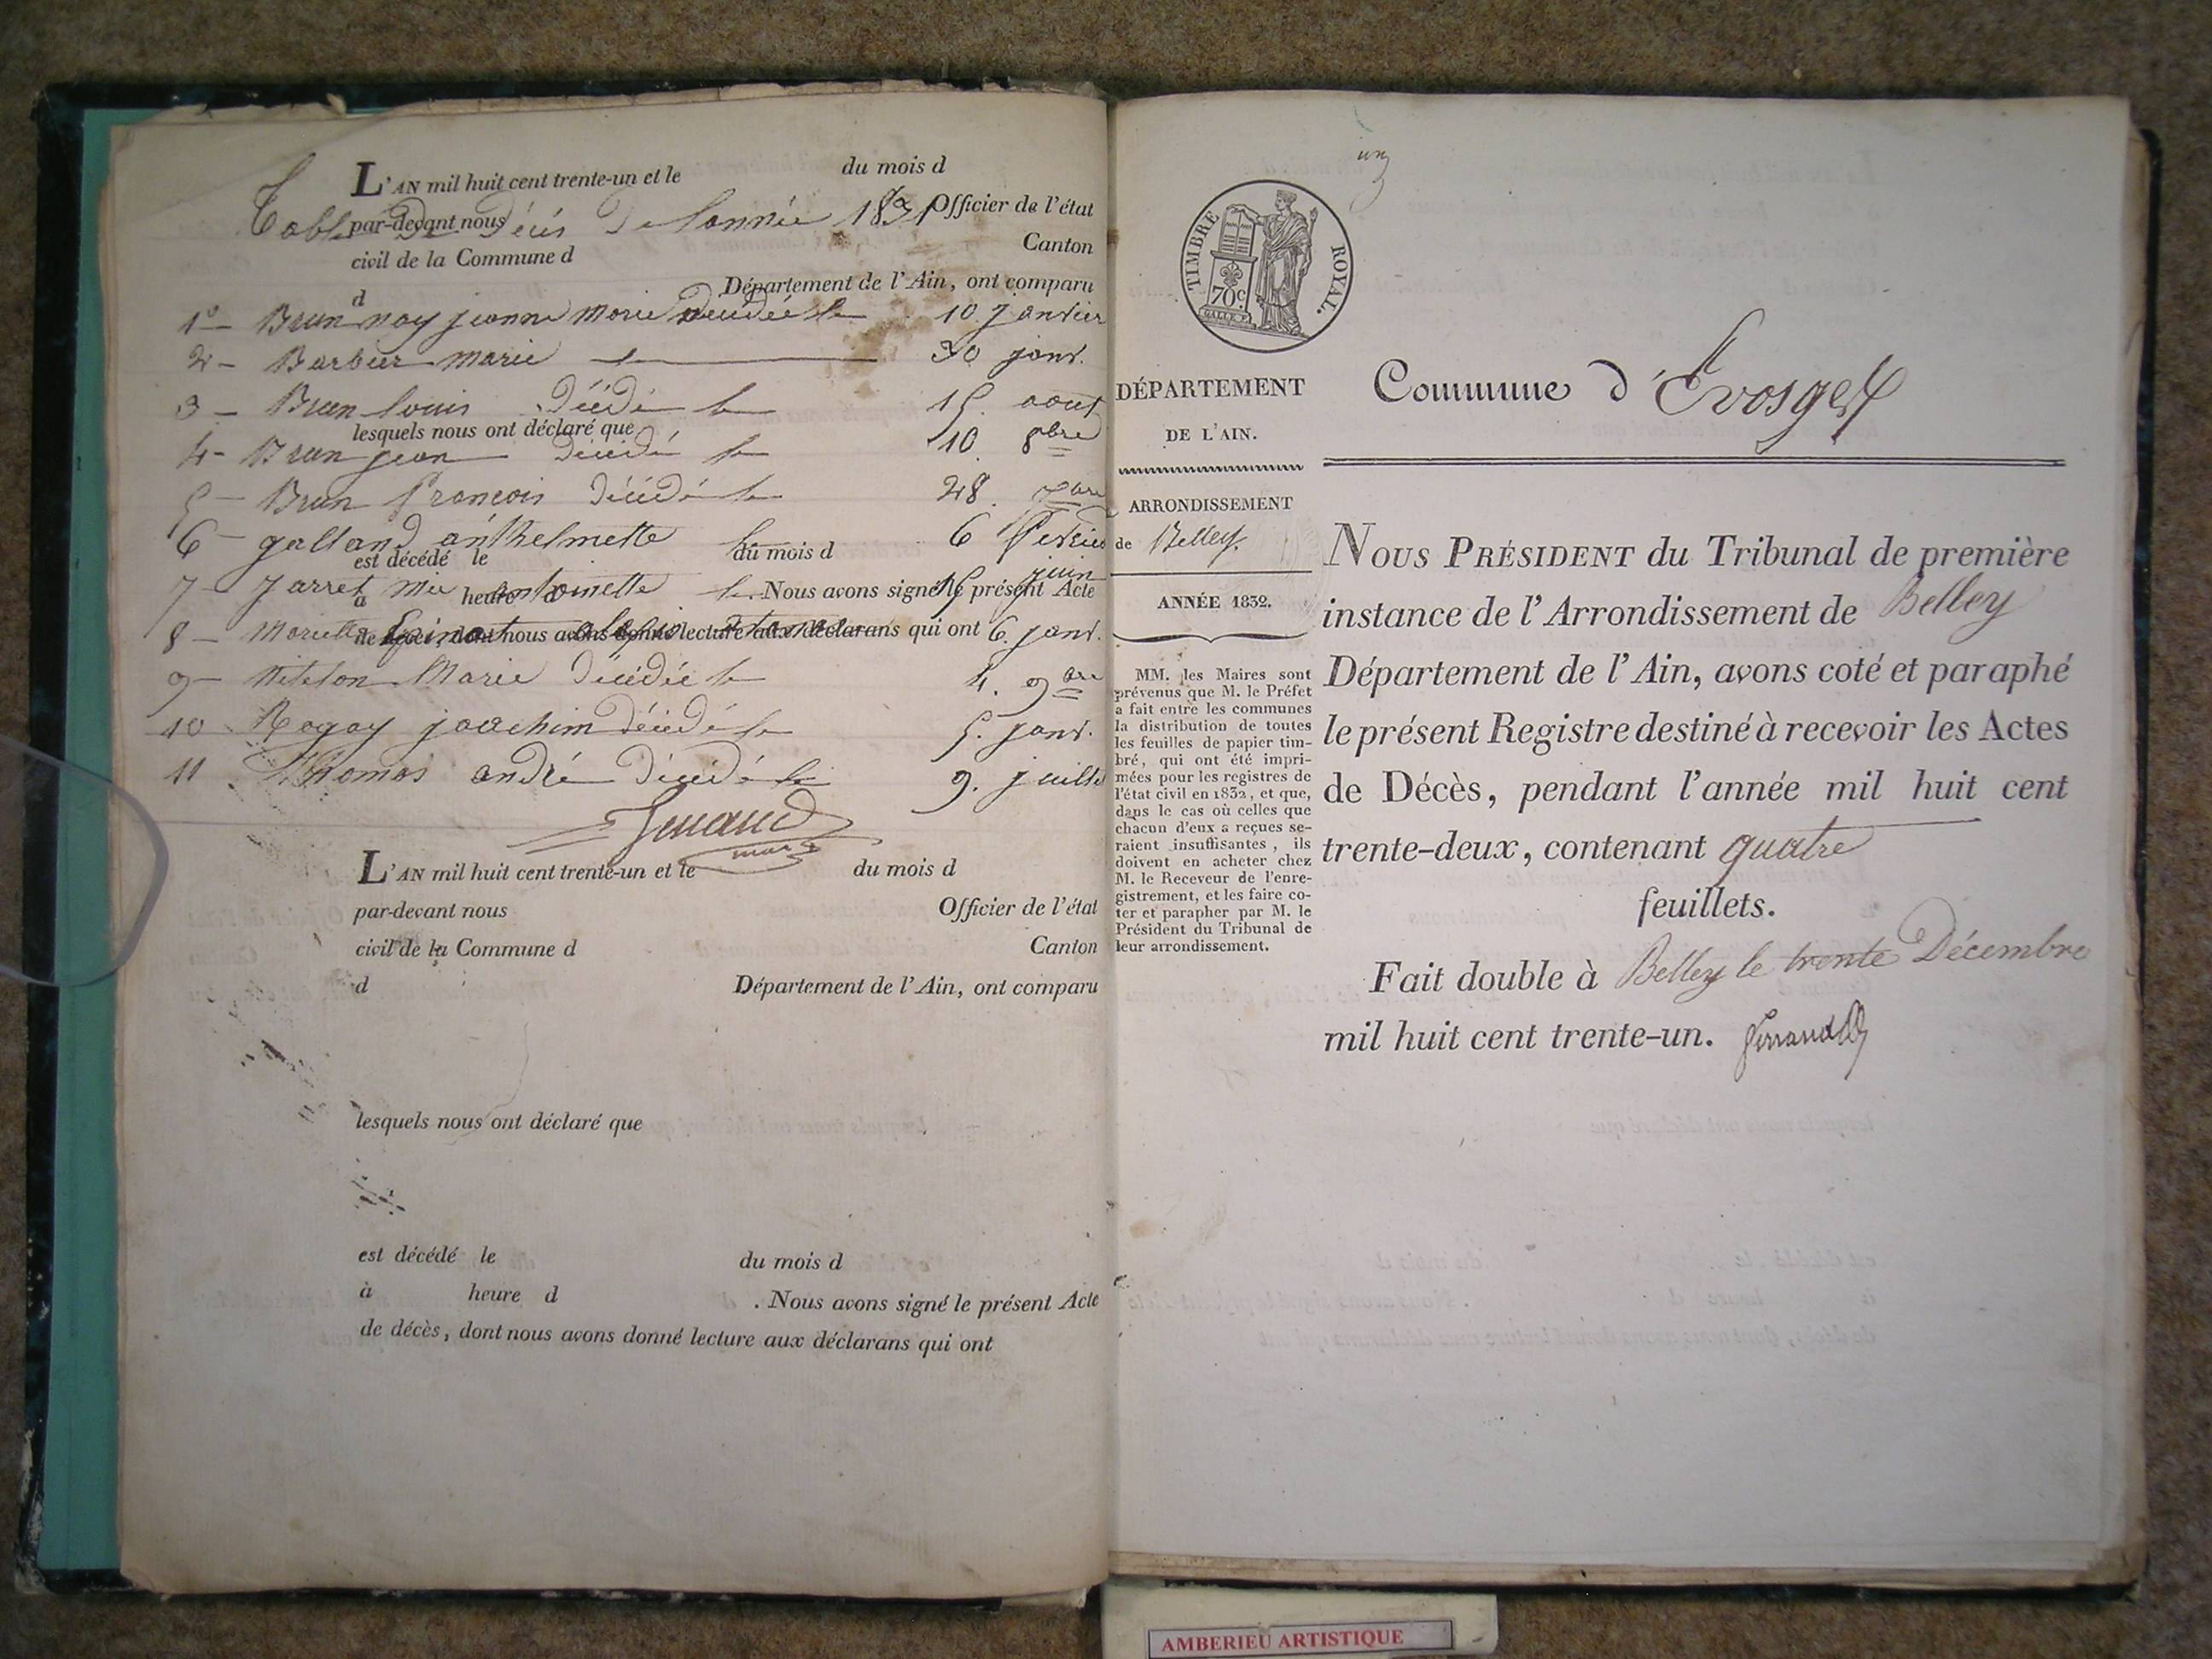 L'AN mil huit cent trente-un et le du mois d
Table de Décès de l'année 1831
par-devant nous Officier de l'état
civil de la Commune d Canton
d Département de l'Ain, ont comparu
1° Brun jeanne marie décédée le 10 janvier
2 - Barbier marie le 30 janv.
3 - Brun louis décédé le 15. aout
lesquels nous ont déclaré que
4 - Brun jean décédé le 10. 8bre
5 - Brun françois décédé le 28.
6 - galland anthelmette le 6 fevrier
est décédé le du mois d
7 - Jarret antoinette le 15 juin
à heure d . Nous avons signé le présent Acte
8 - 6. janv.
de décès, dont nous avons donné lecture aux déclarans qui ont
9 - Marie décédée le 4. 9bre
10 Rogay joachim décédé le 5. janv.
11 Thomas andré décédé le 9. juillet
L'AN mil huit cent trente-un et le du mois d
par-devant nous Officier de l'état
civil de la Commune d Canton
d Département de l'Ain, ont comparu
lesquels nous ont déclaré que
est décédé le du mois d
à heure d . Nous avons signé le présent Acte
de décès, dont nous avons donné lecture aux déclarans qui ont
TIMBRE ROYAL.
70c.
DÉPARTEMENT
DE L'AIN.
ARRONDISSEMENT
de Belley.
ANNÉE 1832.
MM. les Maires sont
prévenus que M. le Préfet
a fait entre les communes
la distribution de toutes
les feuilles de papier tim-
bré, qui ont été impri-
mées pour les registres de
l'état civil en 1832, et que,
dans le cas où celles que
chacun d'eux a reçues se-
raient insuffisantes, ils
doivent en acheter chez
M. le Receveur de l'enre-
gistrement, et les faire co-
ter et parapher par M. le
Président du Tribunal de
leur arrondissement.
Commune d'Evosges
NOUS PRÉSIDENT du Tribunal de première
instance de l'Arrondissement de Belley
Département de l'Ain, avons coté et paraphé
le présent Registre destiné à recevoir les Actes
de Décès, pendant l'année mil huit cent
trente-deux, contenant quatre
feuillets.
Fait double à Belley le trente Décembre
mil huit cent trente-un.
AMBERIEU ARTISTIQUE